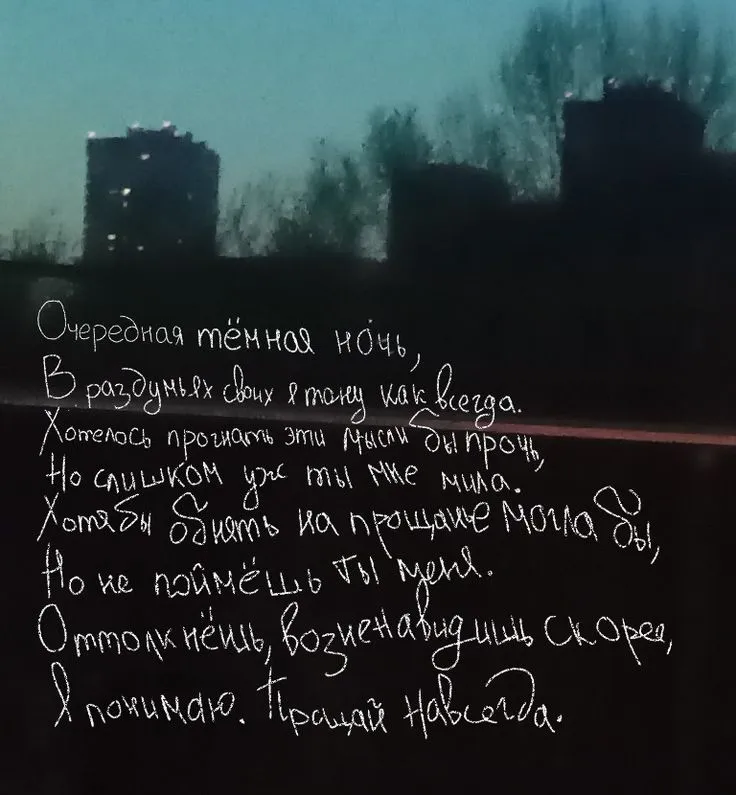 Очередная тёмная ночь,
В раздумьях своих я тону как всегда.
Хотелось прогнать эти мысли бы прочь,
Но слишком уж ты мне мила.
Хотя бы обнять на прощанье могла бы,
Но не поймёшь ты меня.
Оттолкнёшь, возненавидишь скорее,
Я понимаю. Прощай навсегда.